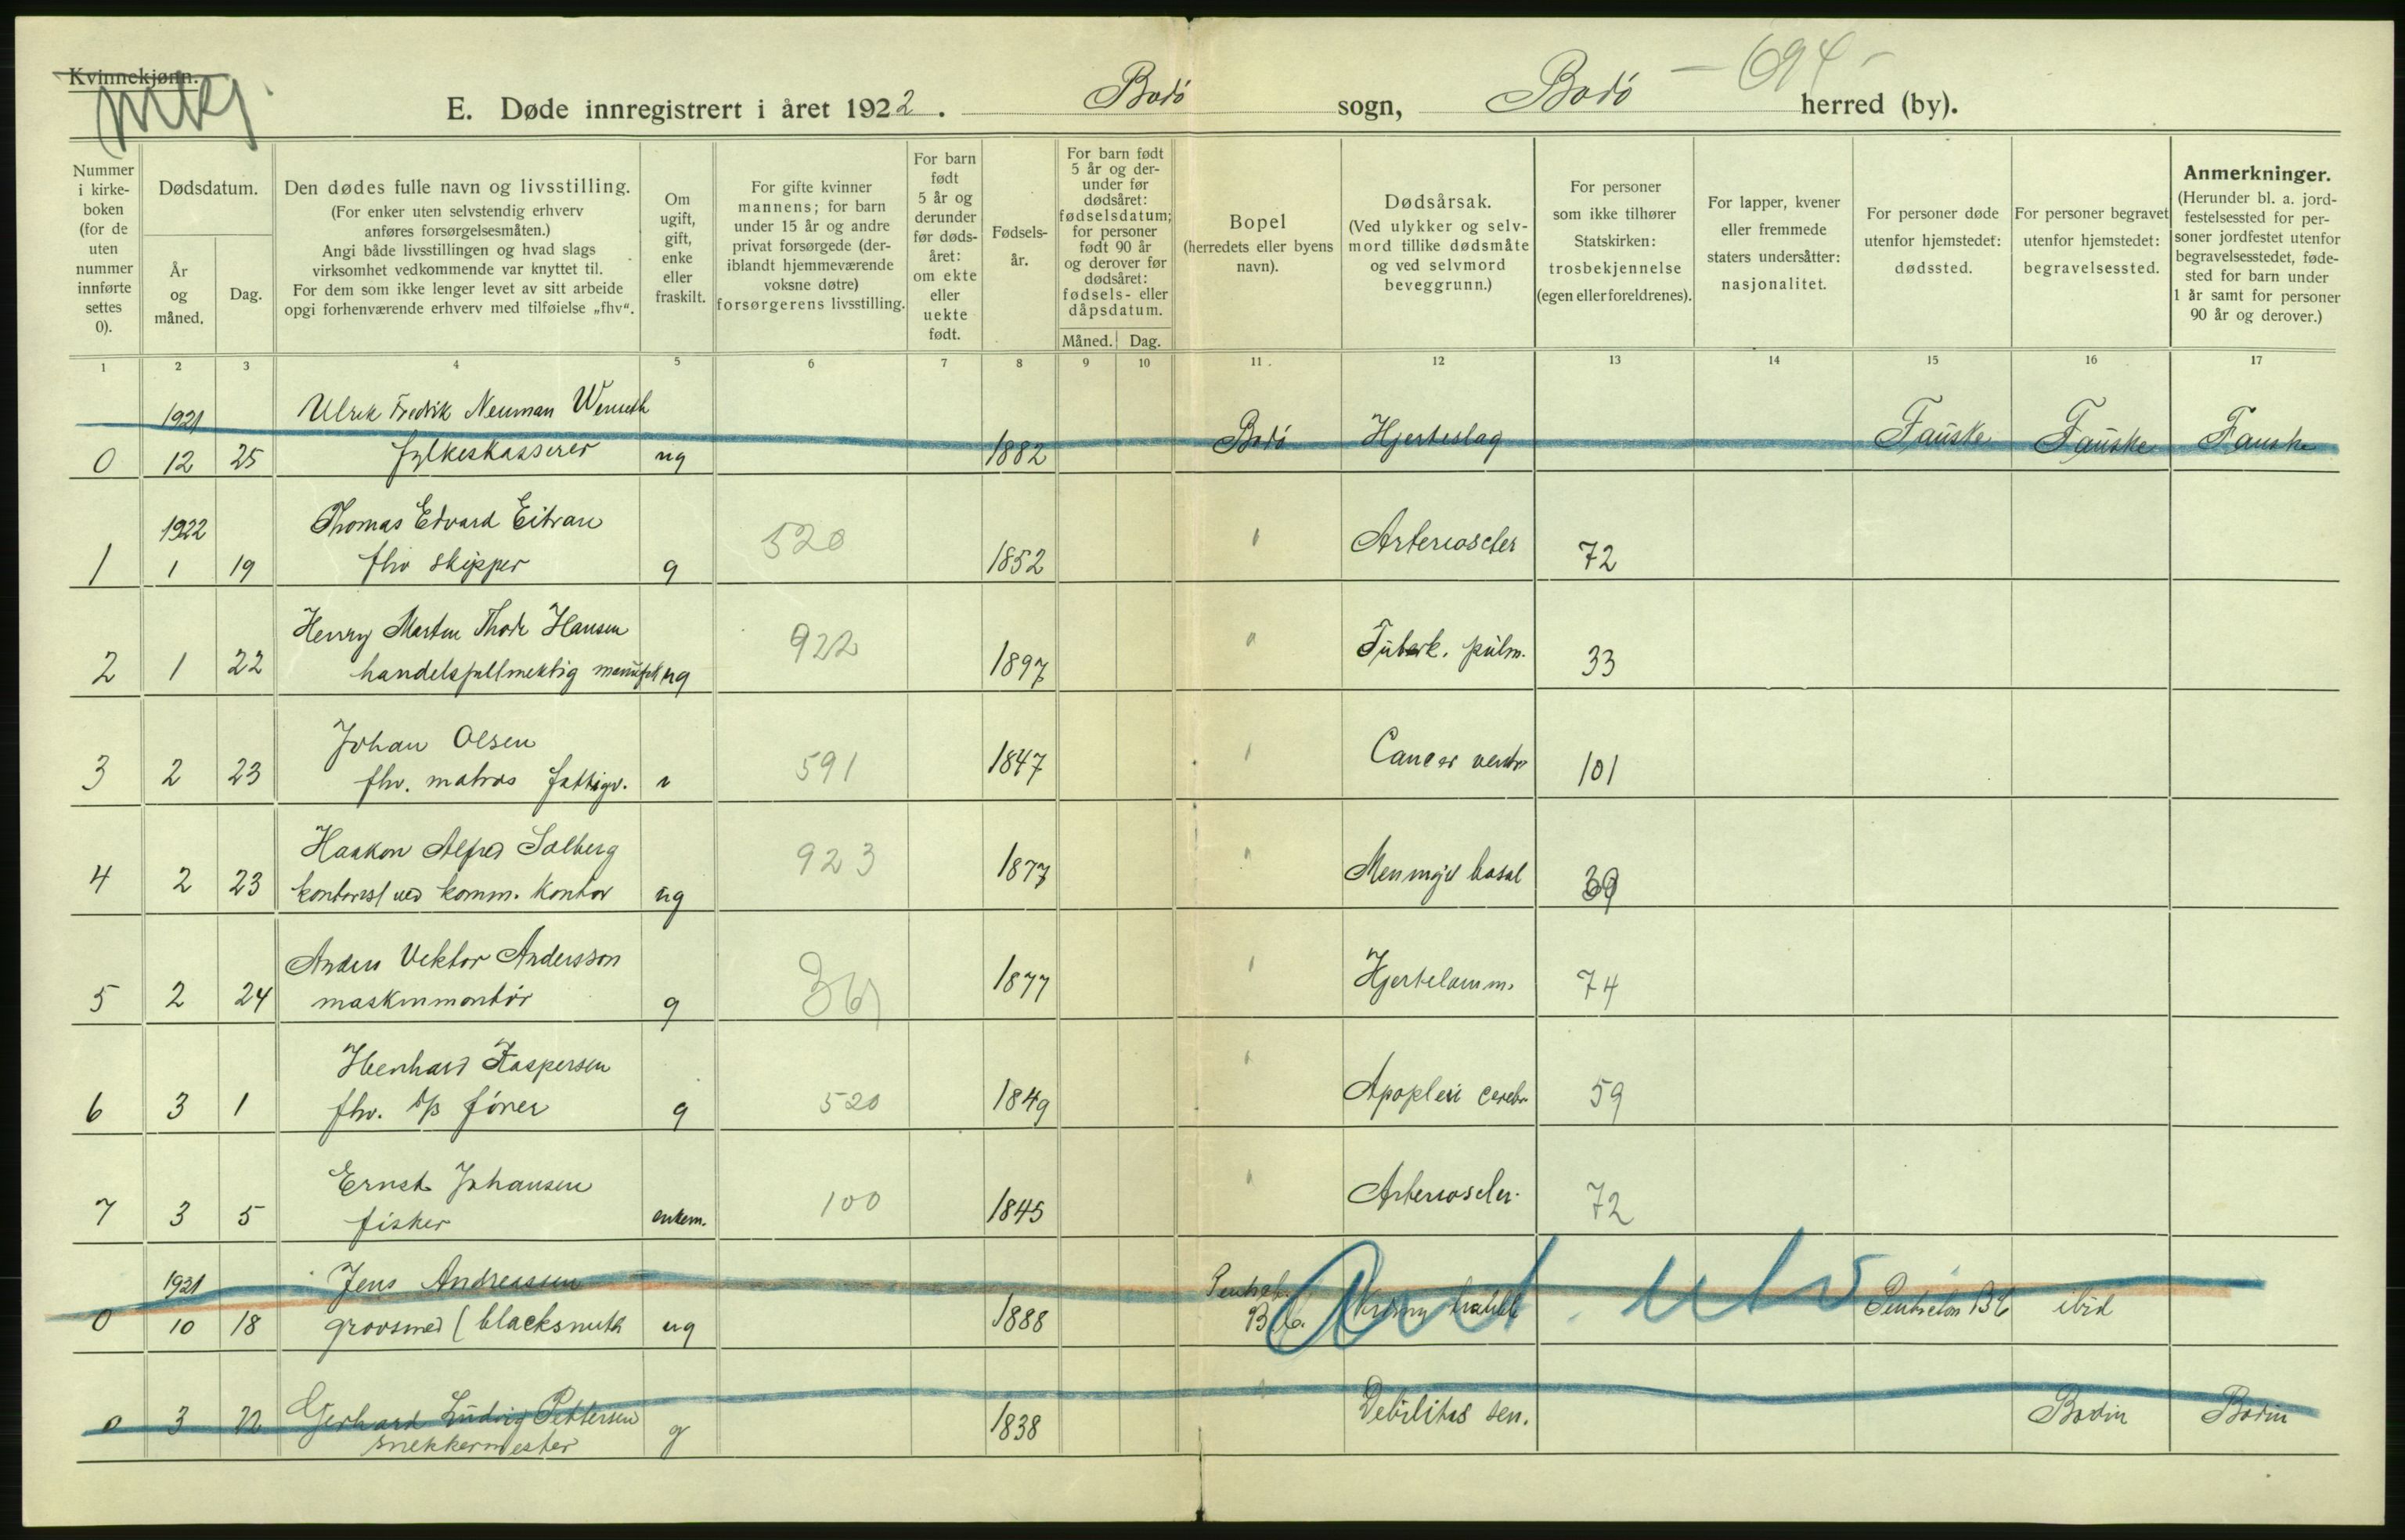 Kvinnekjønn.
mkj.
E. Døde innregistrert i året 1922. Bodø sogn, Bodø – 694 – herred (by).
Nummer i kirke-boken (for de uten nummer innførte settes 0).
Dødsdatum.
År og måned.
Dag.
Den dødes fulle navn og livsstilling.
(For enker uten selvstendig erhverv anføres forsørgelsesmåten.)
Angi både livsstillingen og hvad slags virksomhet vedkommende var knyttet til.
For dem som ikke lenger levet av sitt arbeide opgi forhenværende erhverv med tilføielse „fhv“.
Om ugift, gift, enke eller fraskilt.
For gifte kvinner mannens; for barn under 15 år og andre privat forsørgede (deriblandt hjemmeværende voksne døtre) forsørgerens livsstilling.
For barn født 5 år og derunder før dødsåret: om ekte eller uekte født.
Fødsels-år.
For barn født 5 år og derunder før dødsåret: fødselsdatum; for personer født 90 år og derover før dødsåret: fødsels- eller dåpsdatum.
Måned. Dag.
Bopel
(herredets eller byens navn).
Dødsårsak.
(Ved ulykker og selvmord tillike dødsmåte og ved selvmord beveggrunn.)
For personer som ikke tilhører Statskirken: trosbekjennelse (egen eller foreldrenes).
For lapper, kvener eller fremmede staters undersåtter: nasjonalitet.
For personer døde utenfor hjemstedet: dødssted.
For personer begravet utenfor hjemstedet: begravelsessted.
Anmerkninger.
(Herunder bl. a. jordfestelsessted for personer jordfestet utenfor begravelsesstedet, fødested for barn under 1 år samt for personer 90 år og derover.)
1 2 3 4 5 6 7 8 9 10 11 . 12 13 14 15 16 17
1921 Ulrik Fredrik Neuman
0 12 25 fylkeskasserer ug 1882 Bodø Hjerteslag Fauske Fauske Fauske
1922 Thomas Edvard Eitran
1 1 19 fhv skipper g 520 1852 Arterioscler 72
Henry Martin Thode Hansen
2 1 22 handelsfullmektig manufakt ug 922 1897 Tuberk. pulm. 33
Johan Olsen
3 2 23 fhv. matros fattigv. 591 1847 Cancer ventr 101
Haakon Alfred Solberg
4 2 23 kontorist ved komm. kontor ug 923 1877 Meningit basal 39
Anders Viktor Andersson
5 2 24 maskinmontør g 1877 Hjertelamm. 74
Kaspersen
6 3 1 fhv. g 520 1849 Apoplexi cerebr 59
Ernst Johansen
7 3 5 fisker enkem. 100 1845 Arterioscler. 72
1921 Jens Andreassen
0 10 18 grovsmed (blacksmith ug 1888 B.C. Penticton B C ibid
0 3 22 Gerhard Ludvig Pettersen
snekkermester g 1838 Debilitas sen. Bodin Bodin